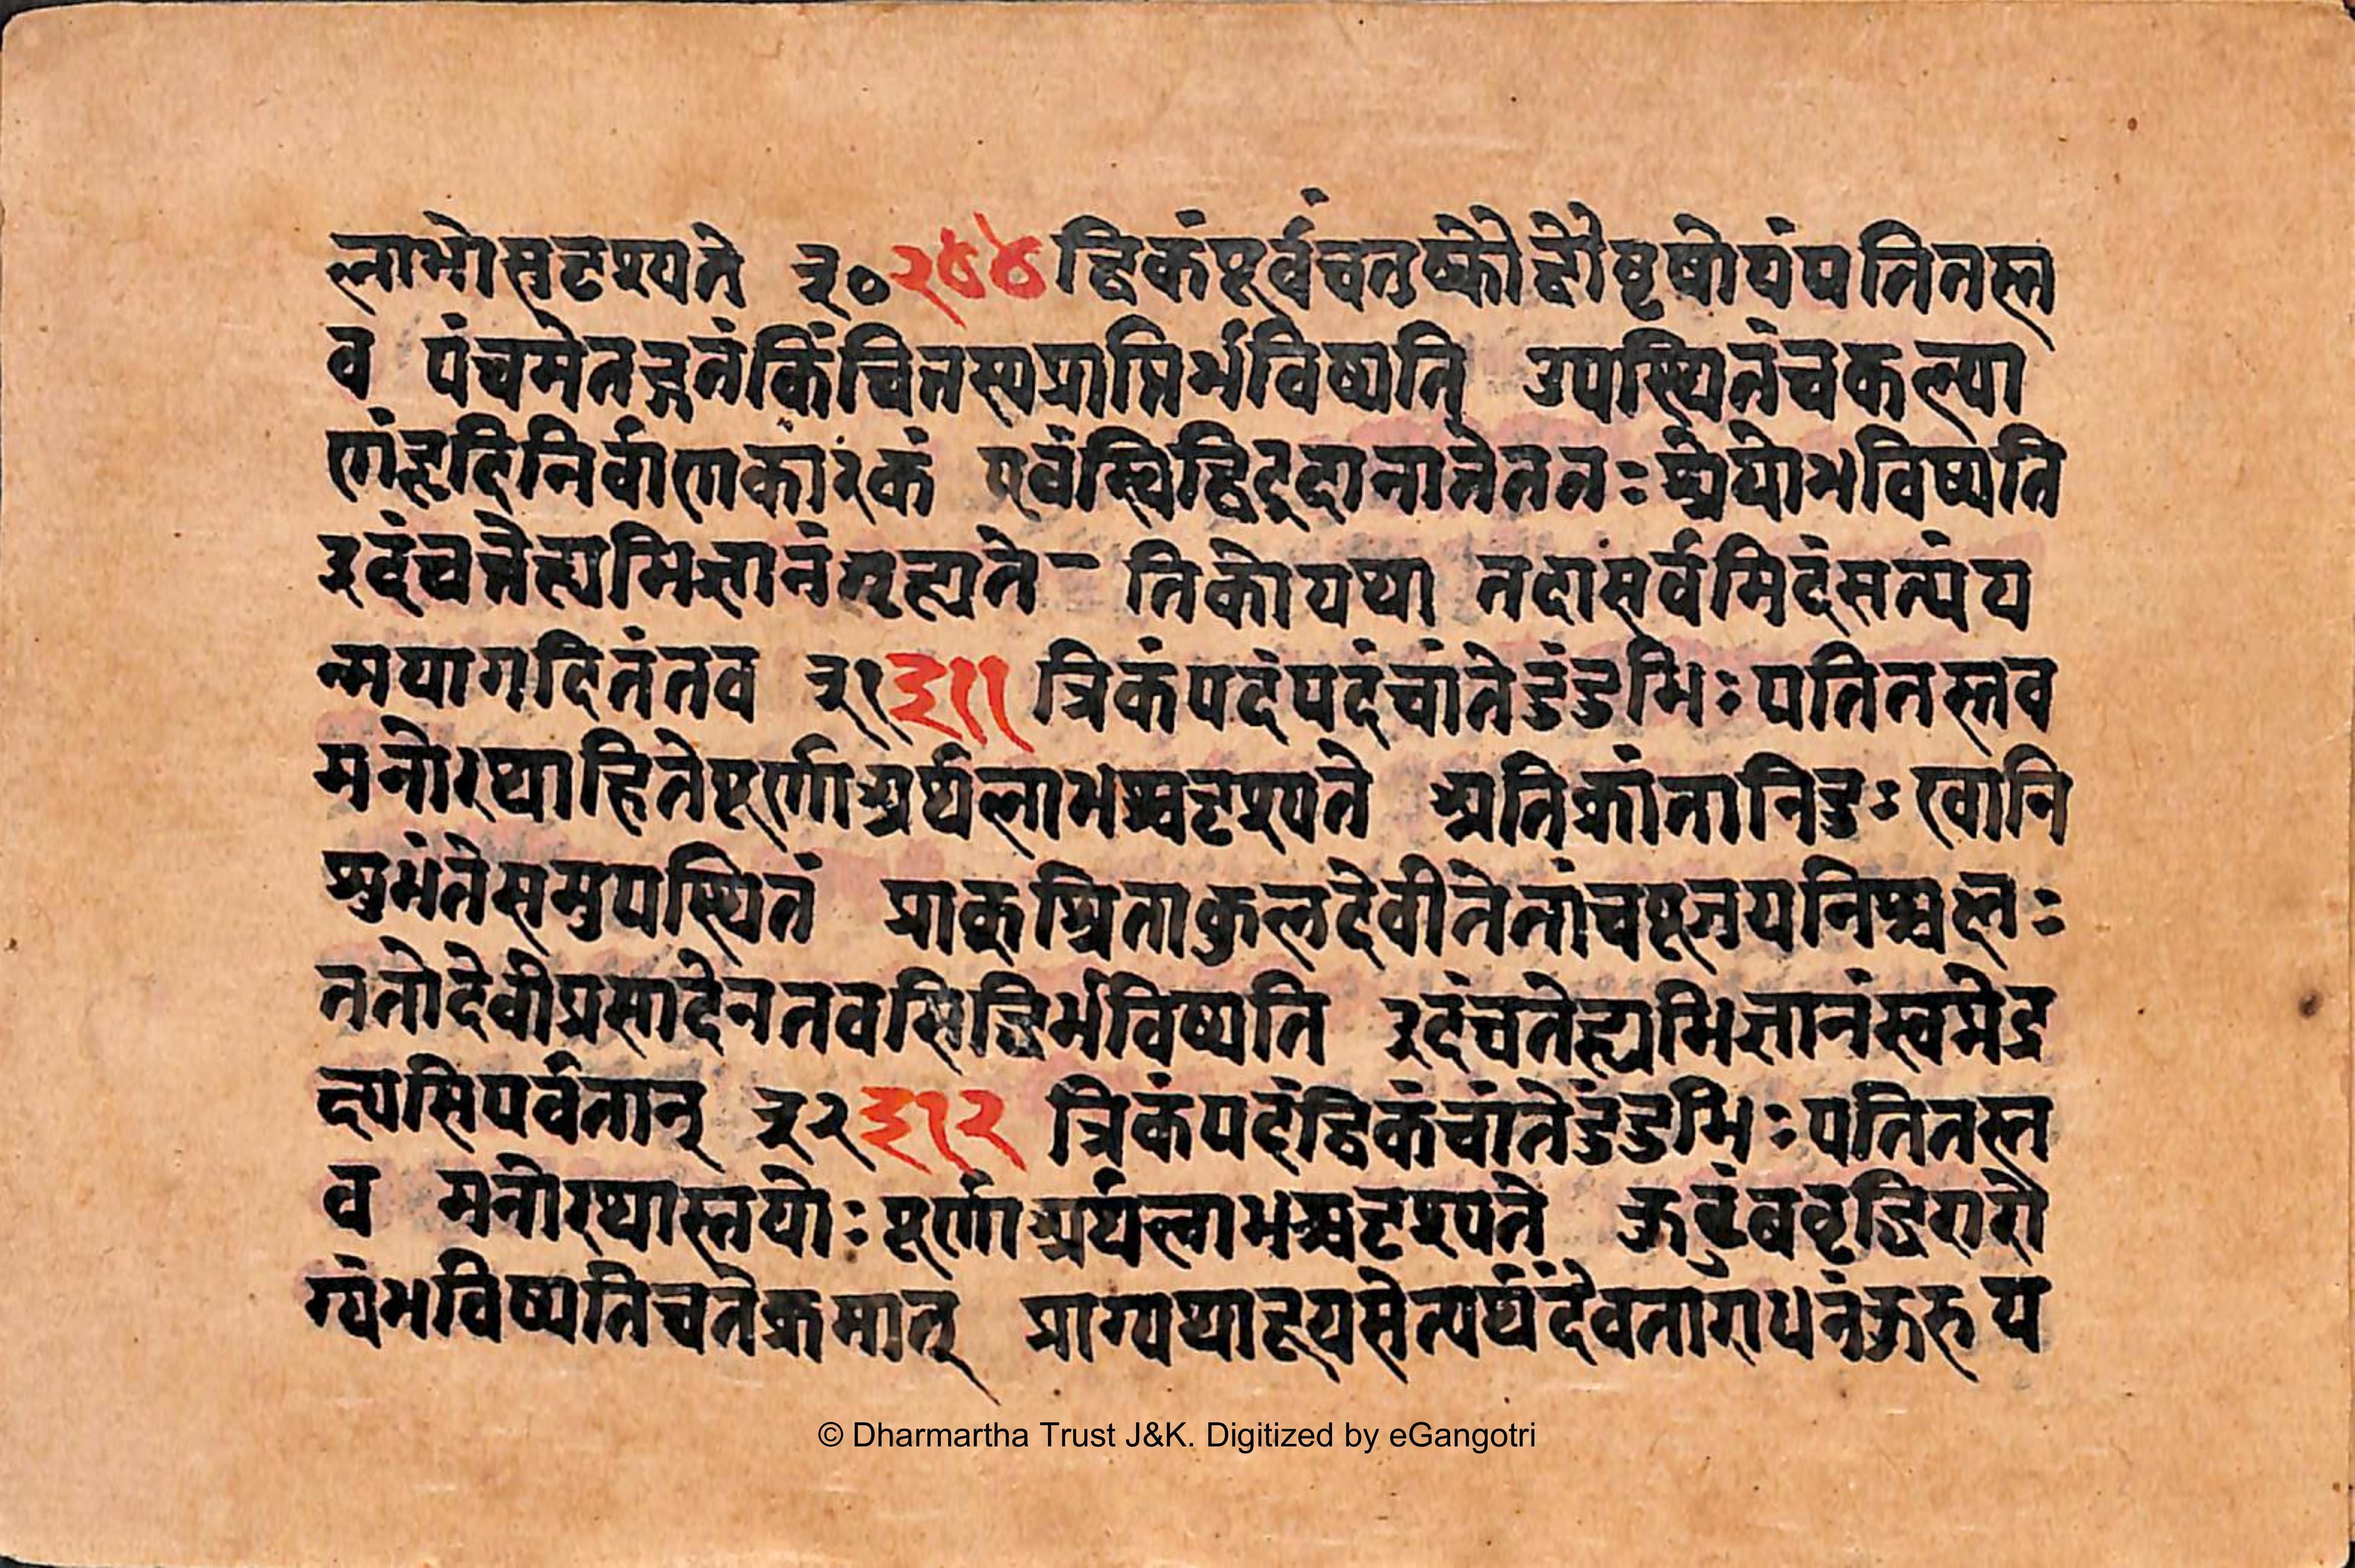 लाभोसदृश्यते ३०२४४द्विकंपूर्वंचतुष्कौद्वौवृषोयंपतितस्त
व पंचमेतद्गतंकिंचित्तस्यप्राप्तिर्भविष्यति उपस्थितंचकल्या
णंहृदिनिर्वाणकारकं एवंस्थिद्विट्दानात्तेततःश्रेयोभविष्यति
इदंचत्तेह्यभिज्ञानंगृह्यते तिकोयथा तदासर्वमिदंसत्यंय
न्मयागदितंतव ३१३११ त्रिकंपदंपदंचांतेदुंदुभिःपतितस्तव
मनोरथाहितेपूर्णाअर्थलाभश्चदृश्यते अतिक्रांतानिदुःखानि
शुभंतेसमुपस्थितं प्राक्पूजिताकुलदेवीतेतांचपूजयनिश्चलः
ततोदेवीप्रसादेनतवसिद्धिर्भविष्यति इदंचतेह्यभिज्ञानंस्वप्नेद्र
क्ष्यसिपर्वतान् ३२३१२ त्रिकंपदंद्विकंचांतेदुंदुभिःपतितस्त
व मनोरथास्तयोःपूर्णाअर्थलाभश्चदृश्यते कुटुंबवृद्धिरारो
ग्यंभविष्यतिचतेक्रमात् प्राग्यथापूयसेत्यर्थंदेवताराधनंकुरु य
© Dharmartha Trust J&K. Digitized by eGangotri